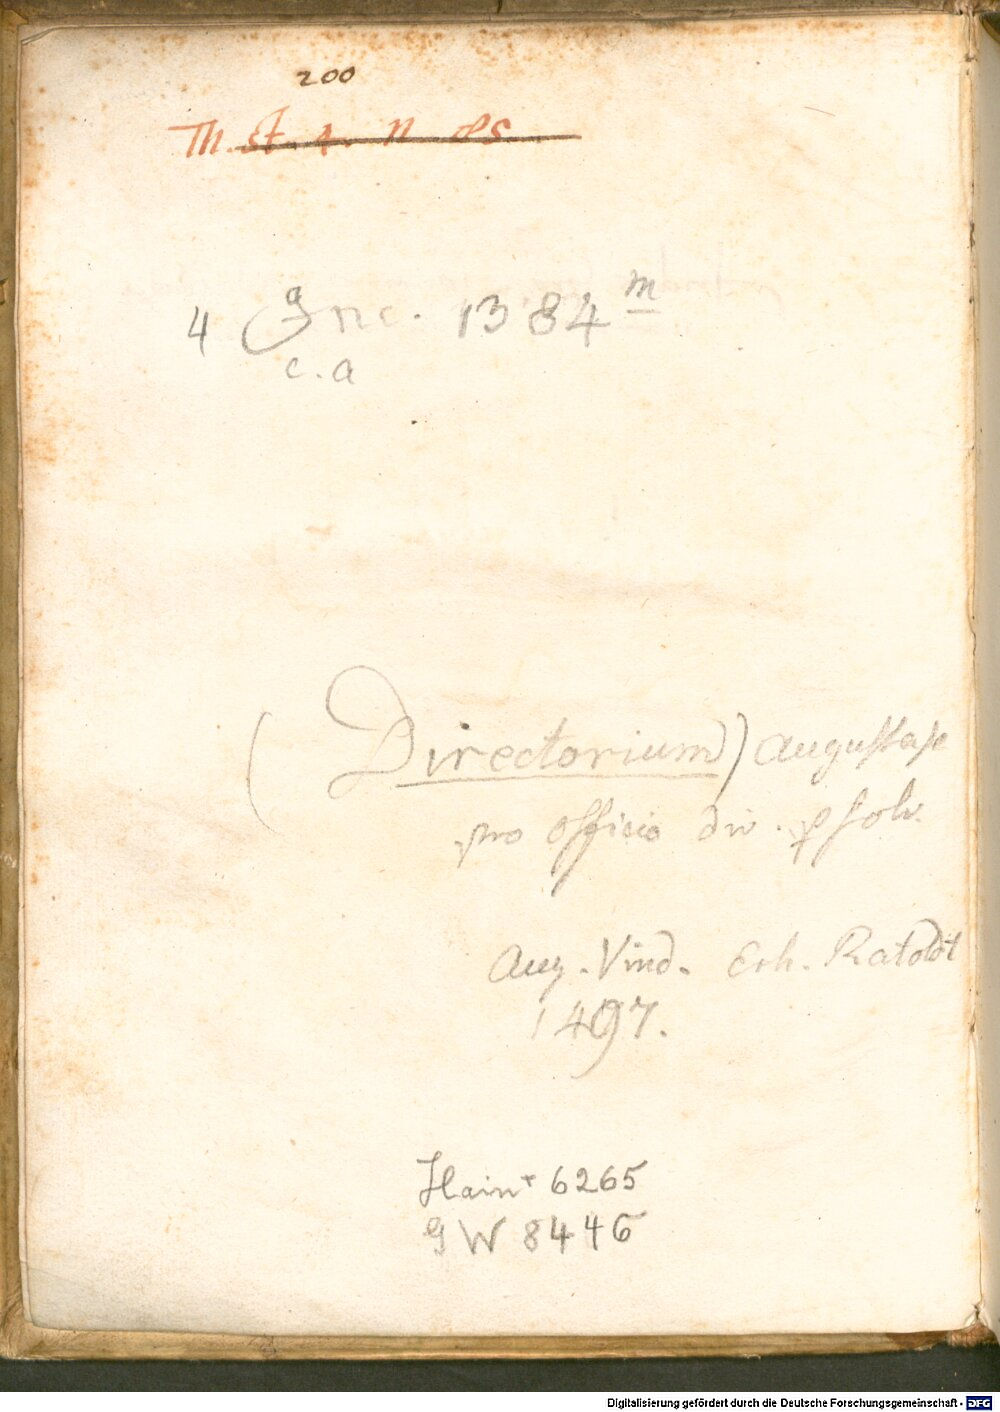 200
Th. St. 4. N 85.
4 Inc. 1384 m
c. a
(Directorium) Augustase
pro officio div. psolv.
Aug. Vind. Erh. Ratoldt
1497.
Hain* 6265
GW 8446
Digitalisierung gefördert durch die Deutsche Forschungsgemeinschaft - DFG